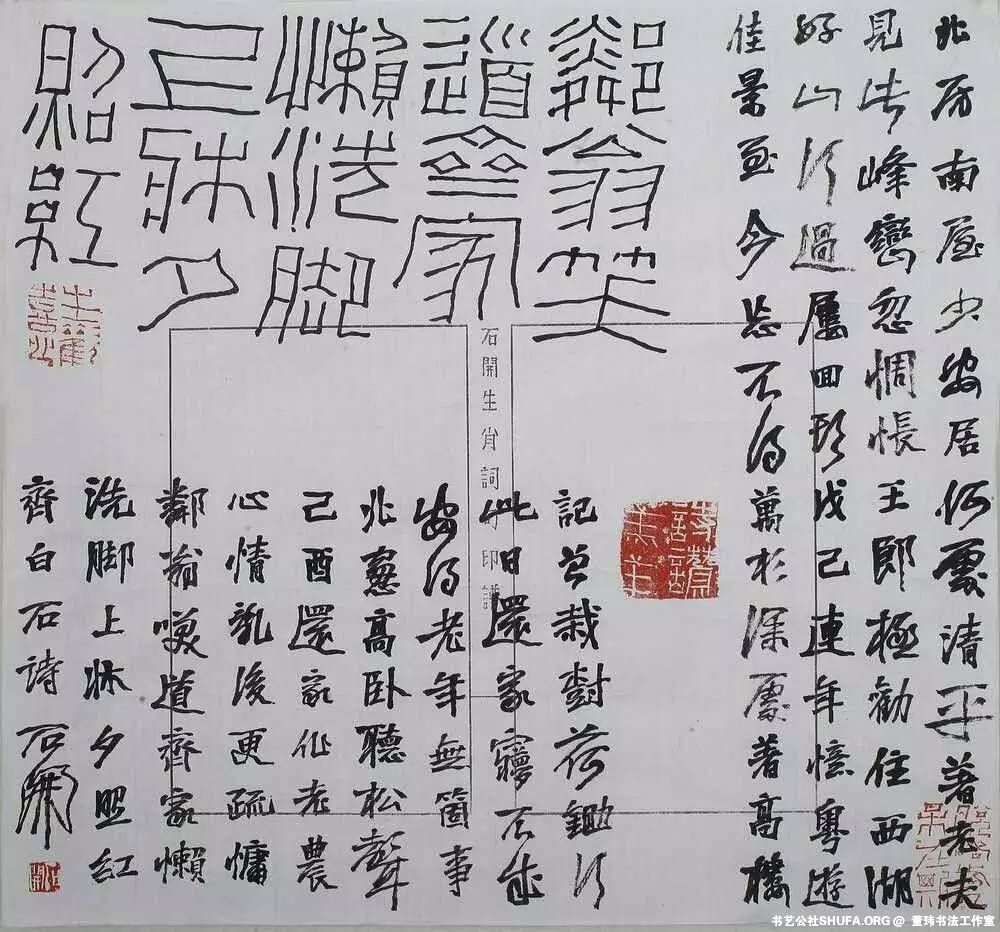 北房南屋少安居何處清平著老夫
見此峰巒忽惆悵王郎極勸住西湖
好山行過屢回頭戊己連年憶粵遊
佳景至今忘不得萬杉深處著高樓
鄰翁笑
道齊家
懶洗脚
上牀夕
照紅
記曾栽樹荷鋤行
此日還家夢不成
安得老年無箇事
北窻高卧聽松聲
己酉還家作老農
心情亂後更疏慵
鄰翁笑道齊家懶
洗脚上牀夕照紅
齊白石詩 石開
石開生肖詞印譜
书艺公社SHUFA.ORG @ 董玮书法工作室